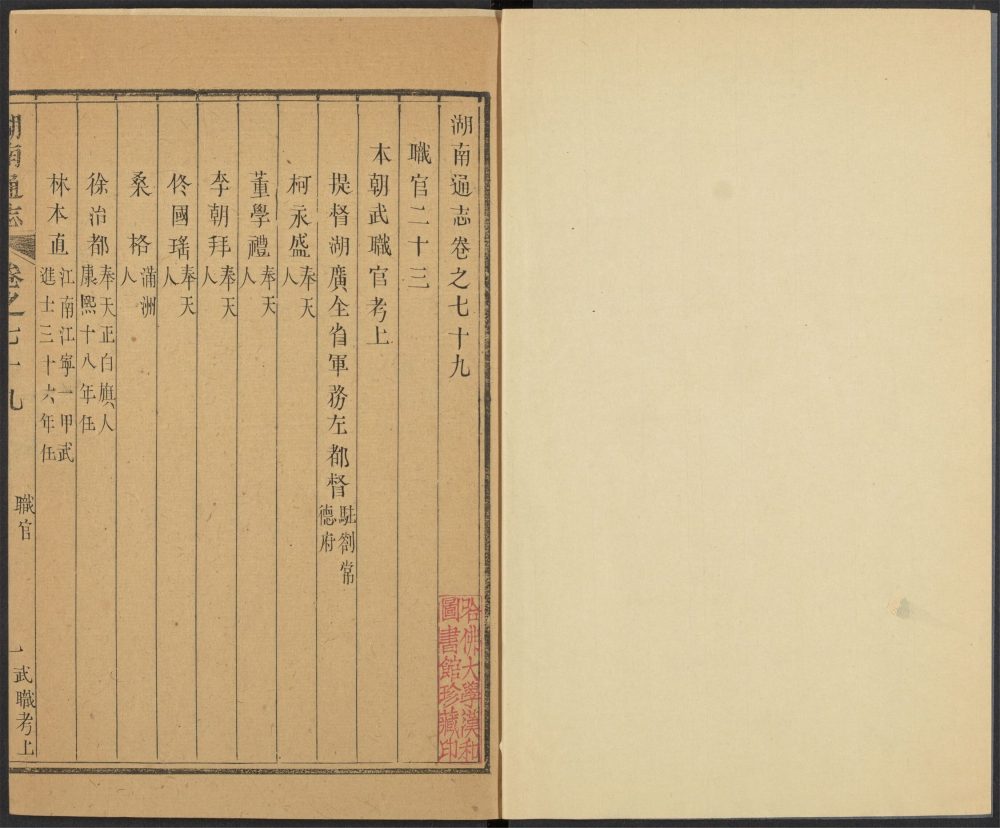 湖南通志卷之七十九
職官二十三
本朝武職官考上
提督湖廣全省軍務左都督駐劄常德府
柯永盛奉天人
董學禮奉天人
李朝拜奉天人
佟國瑤奉天人
桑格滿洲人
徐治都奉天正白旗人康熙十八年任
林本直江南江寧一甲武進士三十六年任
湖南通志 卷之七十九 職官 一 武職考上
哈佛大學漢和
圖書館珍藏印